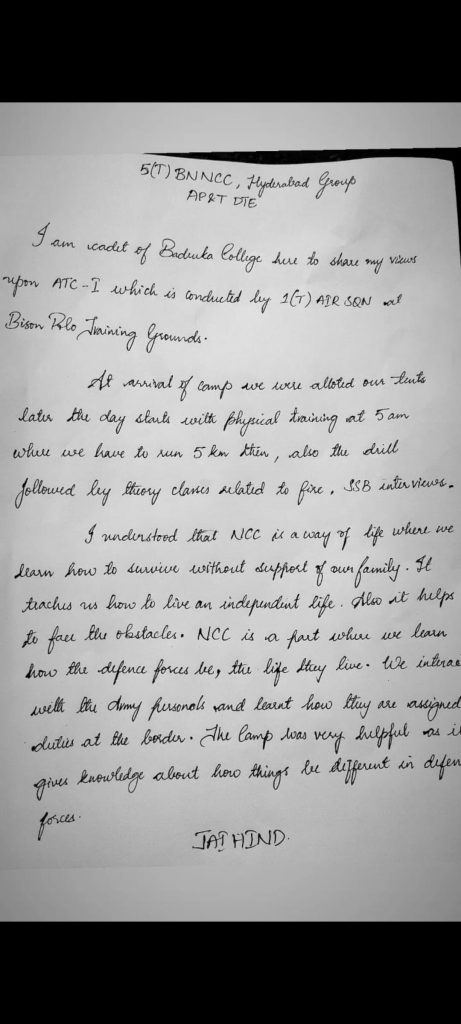 5(T) BN NCC, Hyderabad Group
AP&T DTE
I am cadet of Badruka College here to share my views
upon ATC-I which is conducted by 1(T) AIR SQN at
Bison Polo Training Grounds.
At arrival of camp we were alloted our tents
later the day starts with physical training at 5 am
where we have to run 5 km then, also the drill
followed by theory classes related to fire, SSB interviews.
I understood that NCC is a way of life where we
learn how to survive without support of our family. It
teaches us how to live an independent life. Also it helps
to face the obstacles. NCC is a part where we learn
how the defence forces be, the life they live. We interac
with the Army personals and learnt how they are assigned
duties at the border. The Camp was very helpful as i
gives knowledge about how things be different in defen
forces.
JAI HIND.